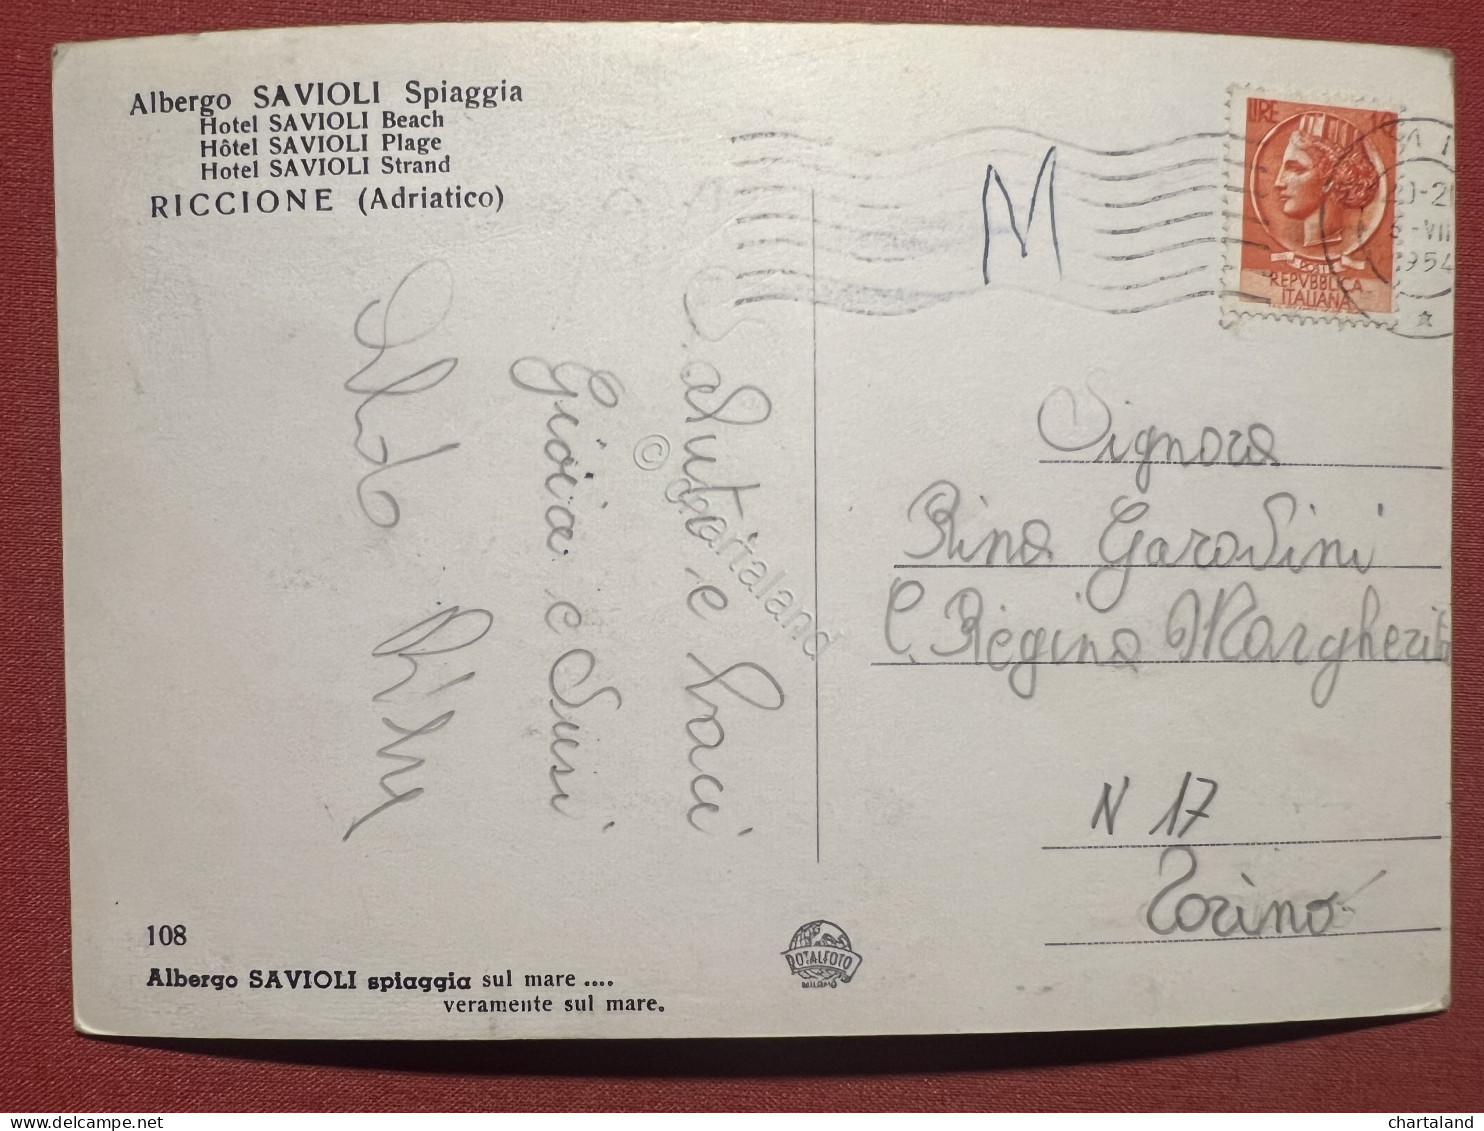 Albergo SAVIOLI Spiaggia
Hotel SAVIOLI Beach
Hôtel SAVIOLI Plage
Hotel SAVIOLI Strand
RICCIONE (Adriatico)
M
LIRE 10
POSTE
REPVBBLICA
ITALIANA
20-21
6-VII
1954
Saluti e baci
Gioia e Susi
Aldo
Signora
Rina Garodini
C. Regina Margherita
N 17
Torino
108
Albergo SAVIOLI spiaggia sul mare ....
veramente sul mare.
ROTALFOTO
MILANO
© Chartaland
chartaland